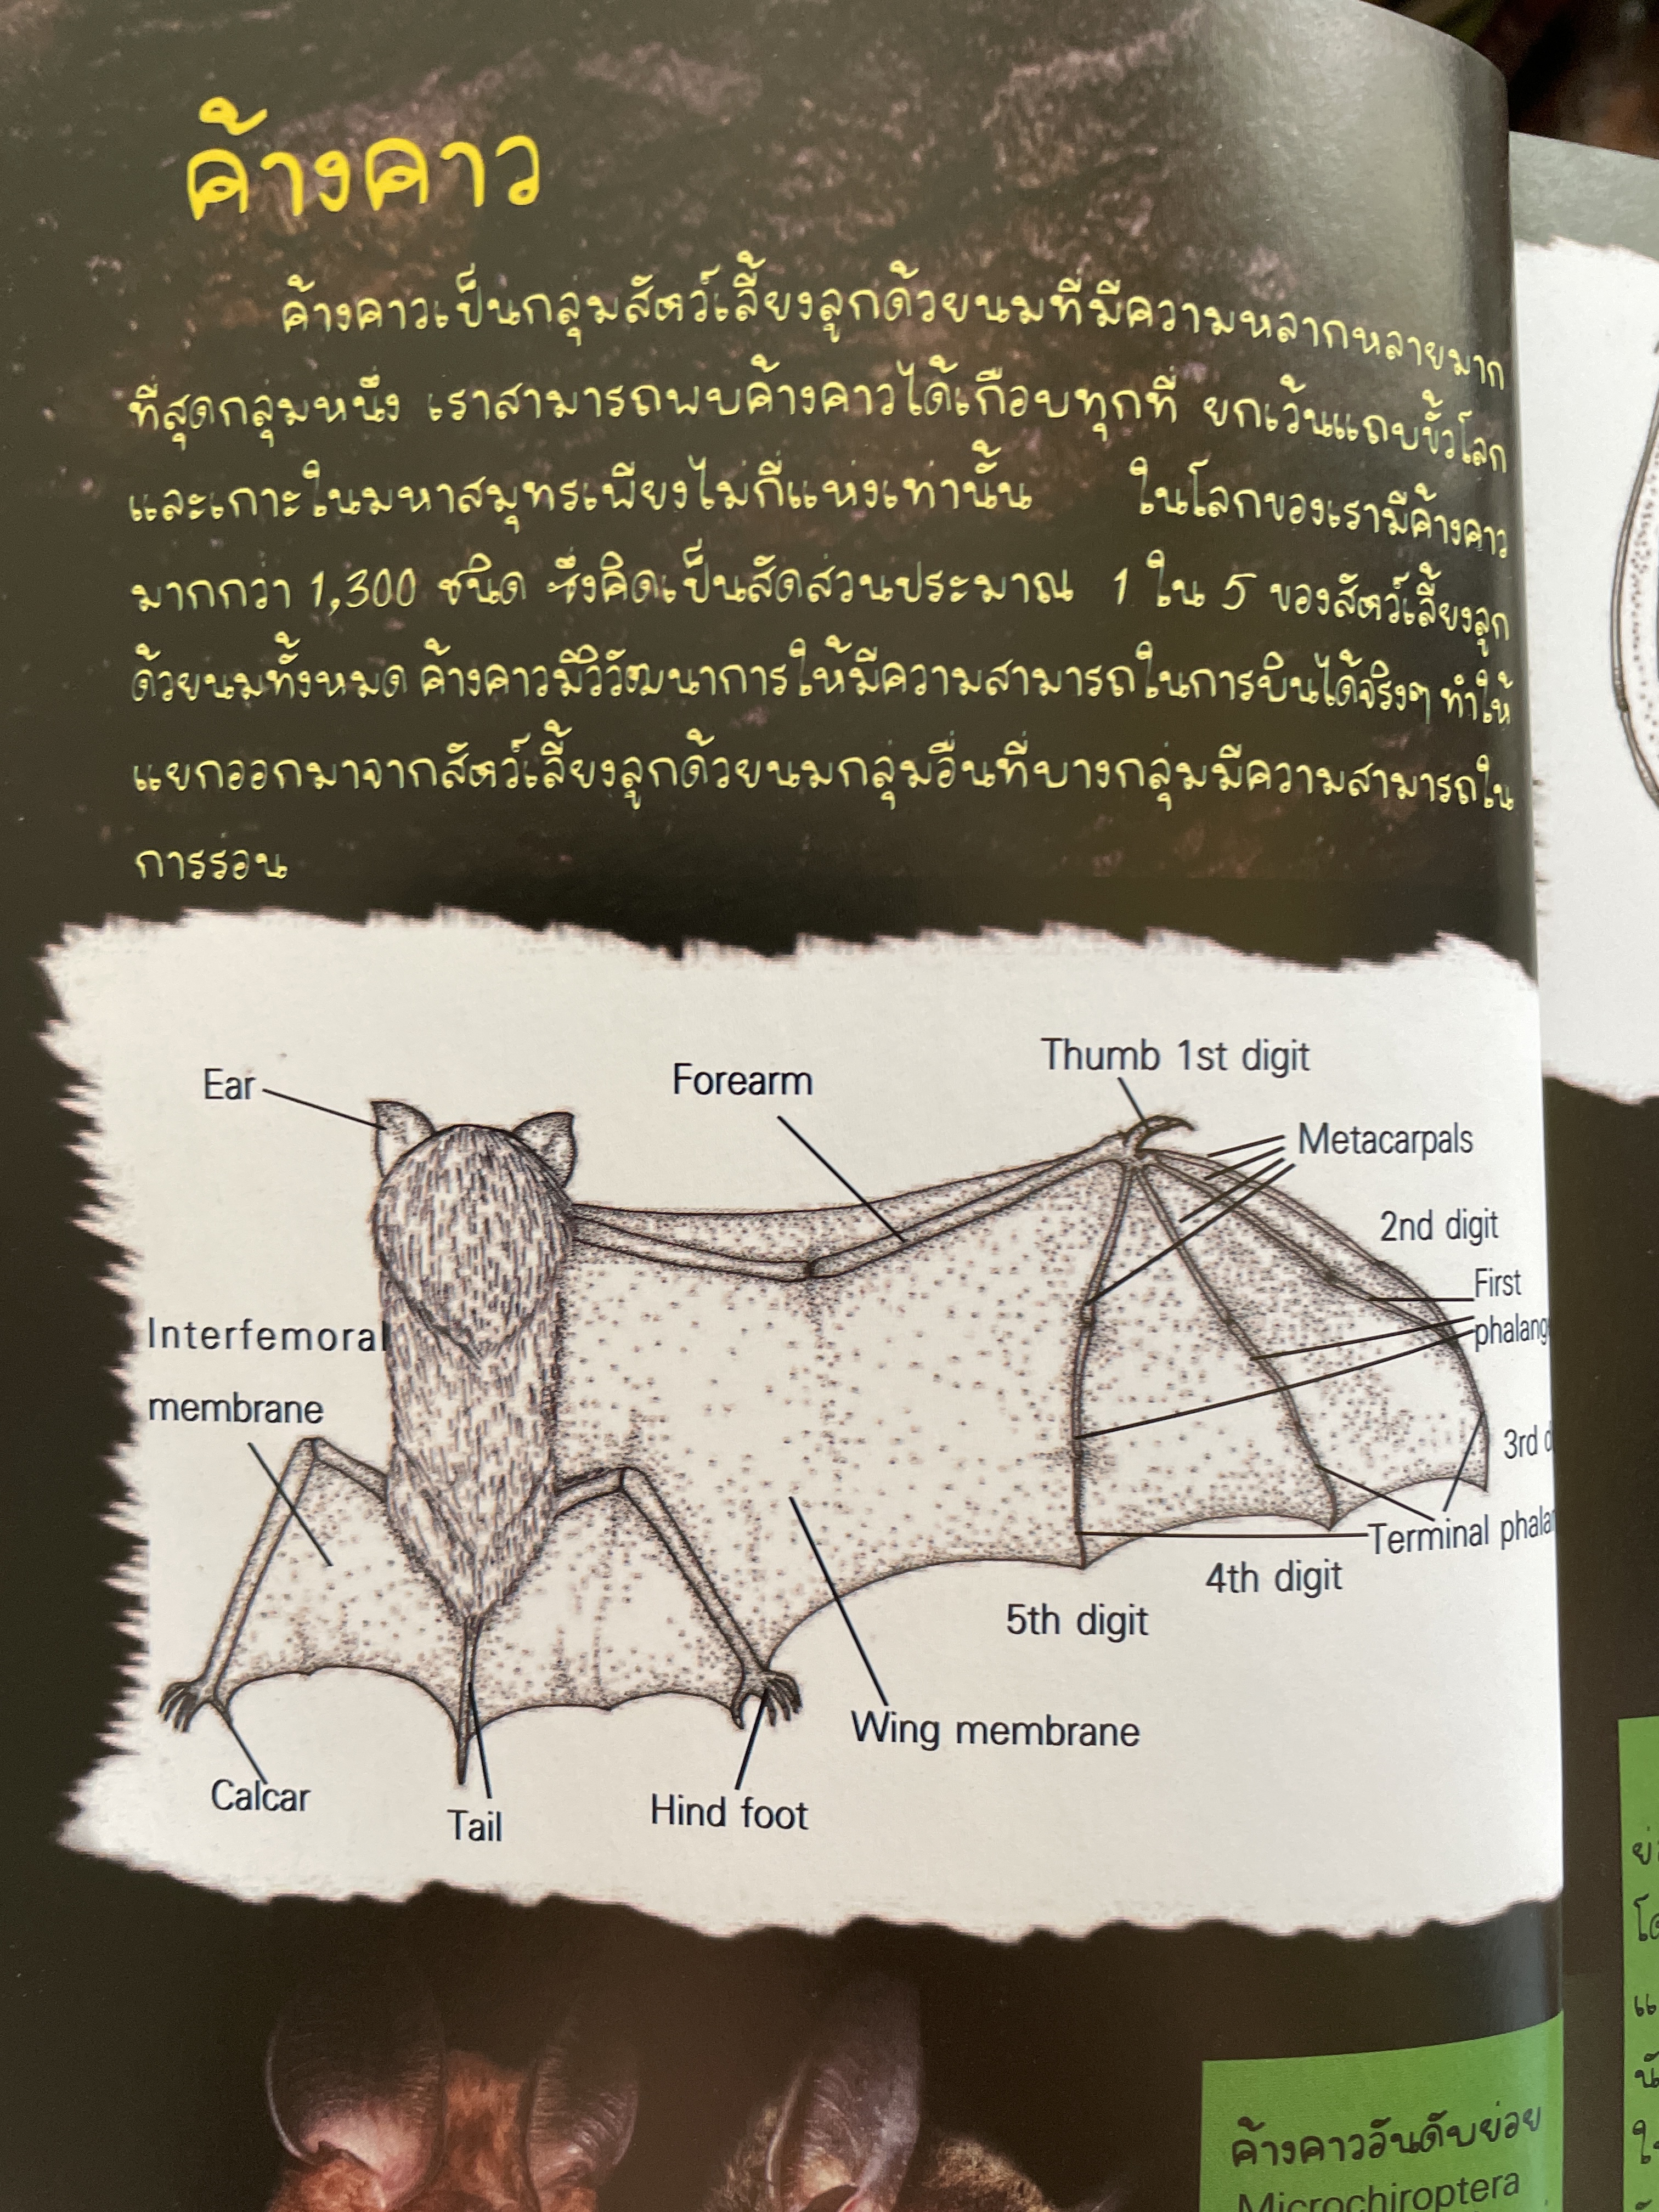 ค้างคาว
ค้างคาวเป็นกลุ่มสัตว์เลี้ยงลูกด้วยนมที่มีความหลากหลายมาก
ที่สุดกลุ่มหนึ่ง เราสามารถพบค้างคาวได้เกือบทุกที่ ยกเว้นแถบขั้วโลก
และเกาะในมหาสมุทรเพียงไม่กี่แห่งเท่านั้น ในโลกของเรามีค้างคาว
มากกว่า 1,300 ชนิด ซึ่งคิดเป็นสัดส่วนประมาณ 1 ใน 5 ของสัตว์เลี้ยงลูก
ด้วยนมทั้งหมด ค้างคาวมีวิวัฒนาการให้มีความสามารถในการบินได้จริงๆ ทำให้
แยกออกมาจากสัตว์เลี้ยงลูกด้วยนมกลุ่มอื่นที่บางกลุ่มมีความสามารถใน
การร่อน
Thumb 1st digit
Ear
Forearm
Metacarpals
2nd digit
First
phalang
Interfemoral
membrane
3rd d
Terminal phala
4th digit
5th digit
Wing membrane
Calcar
Tail
Hind foot
ค้างคาวอันดับย่อย
Microchiroptera